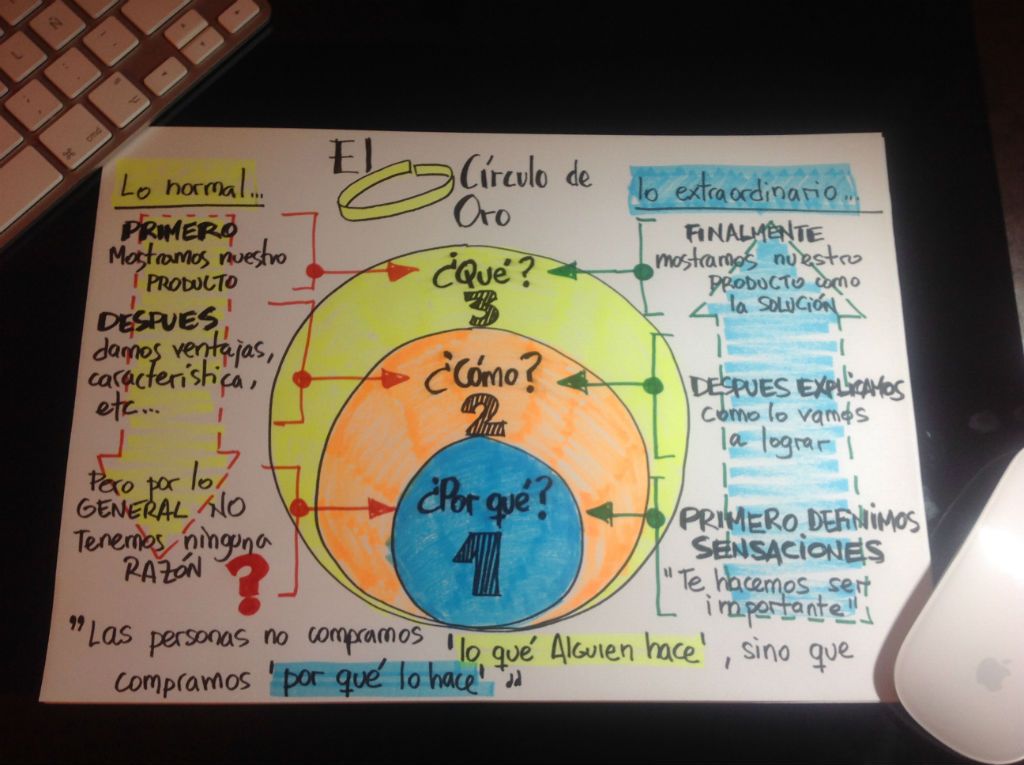 El Círculo de
Oro
Lo normal...
PRIMERO
Mostramos nuestro
PRODUCTO
DESPUES
damos ventajas,
característica,
etc...
Pero por lo
GENERAL NO
Tenemos ninguna
RAZÓN ?
¿Qué?
3
¿Cómo?
2
¿Por qué?
1
lo extraordinario...
FINALMENTE
mostramos nuestro
PRODUCTO como
la SOLUCIÓN
DESPUES EXPLICAMOS
como lo vamos
a lograr
PRIMERO DEFINIMOS
SENSACIONES
"Te hacemos sert
importante"
"Las personas no compramos 'lo qué Alguien hace', sino que
compramos 'por qué lo hace'"
cmd
⌘
Ñ
L